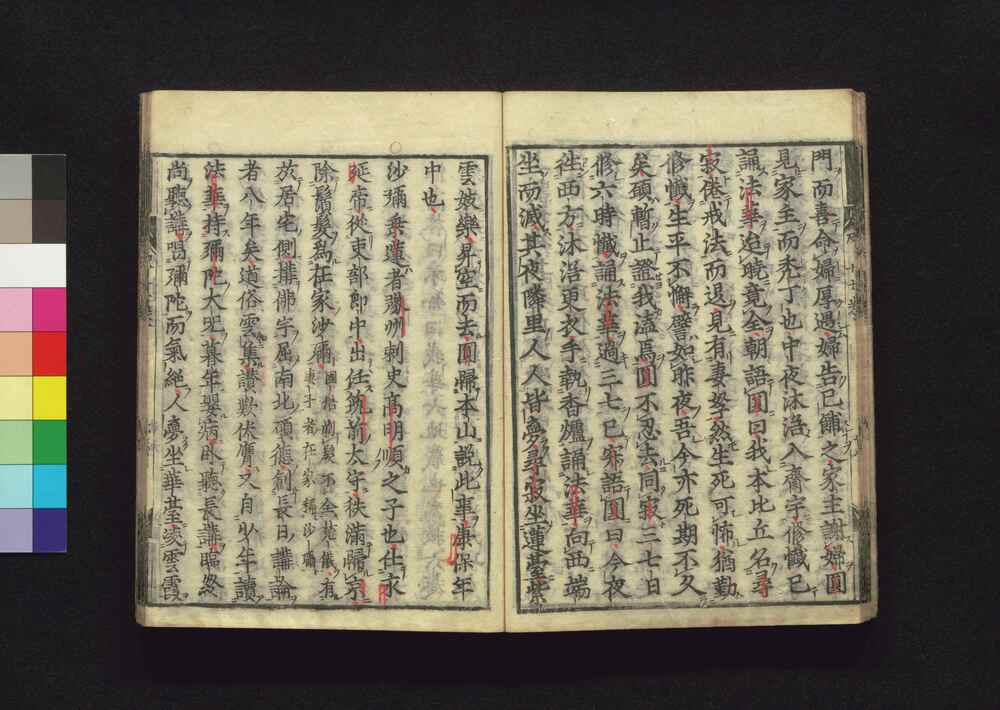 門而喜命婦厚遇婦告已餔之家主謝婦圓
見家主而禿丁也中夜沐浴入齋宇修懺已
誦法華迨曉竟全朝語圓曰我本比丘名尋
寂倦戒法而退見有妻孥然生死可怖猶勤
修懺生平不懈譬如昨夜吾今亦死期不久
矣碩暫止證我盍焉圓不忍去同寂三七日
修六時懺誦法華過三七已寂語圓曰今夜
徃西方沐浴更衣手執香爐誦法華向西端
坐而滅其夜隣里人人皆夢尋寂坐蓮臺紫
雲妓樂昇空而去圓歸本山說此事康保年
中也
沙彌乘蓮者 州刺史高明順之子也仕
延帝從吏部郎中出任筑前太守秩滿歸京
除鬚髮爲在家沙彌國俗剃髮不全楚儀有妻子者在家稱沙彌
於居宅側搆佛宇屈南北碩德創長日講論
者八年矣道俗雲集讃歎伏膺又自少年讀
法華持彌陀大咒暮年嬰病臥聽長講臨終
尚聽講唱彌陀而氣絕人夢坐華臺凌雲霞